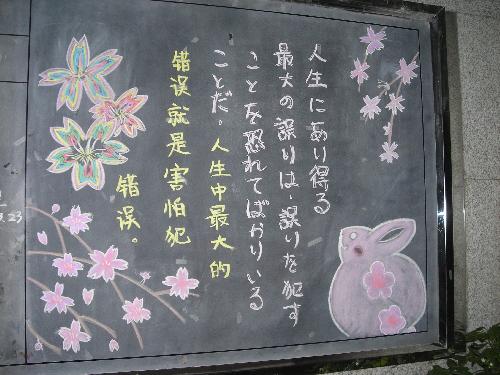 人生にあり得る
最大の誤りは、誤りを犯す
ことを恐れてばかりいる
ことだ。人生中最大的
错误就是害怕犯
错误。
23